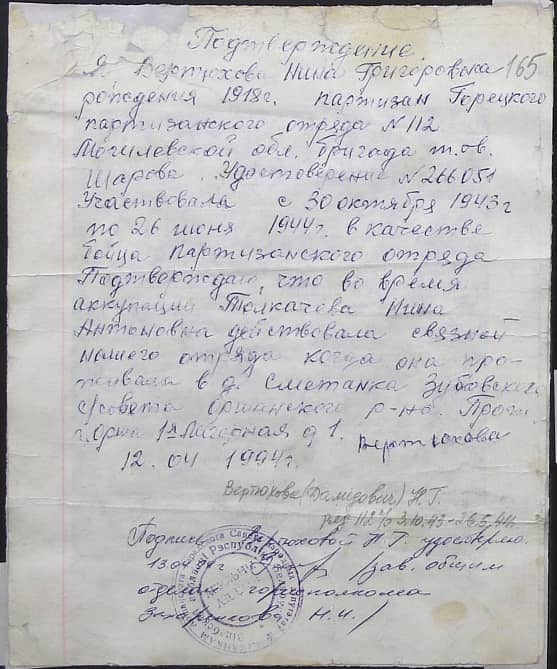 Подтверждение
Я Вертюхова Нина Григоровька 165
рождения 1918г. партизан Горецкого
партизанского отряда N 112
Могилевской обл. бригада т.ов.
Шарова. Удостоверение N 266051
Участвовала с 30 октября 1943г
по 26 июня 1944г. в качестве
бойца партизанского отряда
Подтверждаю, что во время
аккупации Толкачова Нина
Антоновна действовала связной
нашего отряда когда она про-
живала в д. Сметанка Зубовского
с/совета Оршанского р-на. Прож.
г. Орша 1я Лагерная д 1. Вертюхова
12. 04 1994г.
Вертюхова (Демидович) Н.Г.
112 30.10.43-26.6.44
Подпись Вертюховой Н.Г. удостверяю.
13 г. /зав. общим
отделом горисполкома
Н.И./